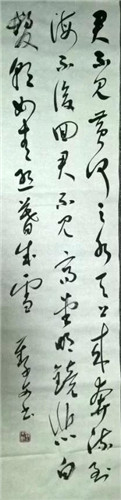 君不见黄河之水天上来奔流到
海不復回君不见高堂明鏡悲白
髮朝如青丝暮成雪